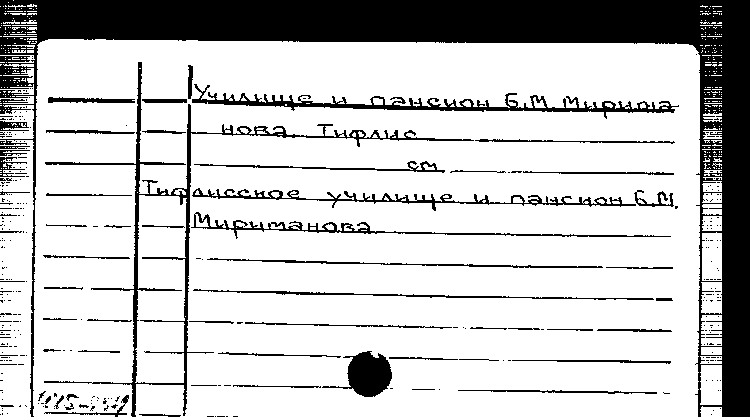 Училище и пансион Б.М. Мирима
нова. Тифлис
см.
Тифлисское училище и пансион Б.М.
Мириманова